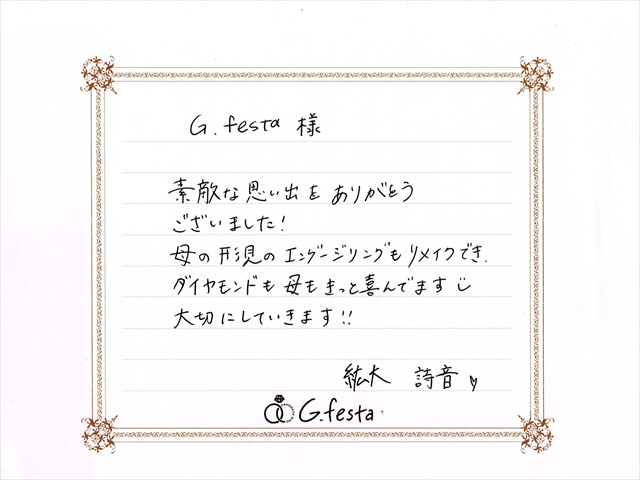 G.festa 様
素敵な思い出を ありがとう
ございました!
母の形見の エンゲージリングも リメイクでき.
ダイヤモンドも 母も きっと喜んでます
大切にしていきます!!
紘大 詩音
G.festa